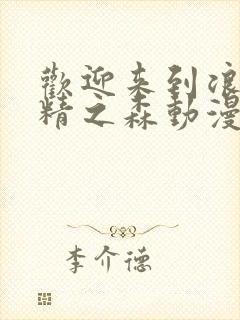 歡迎来到浪
精之森動漫
李介德